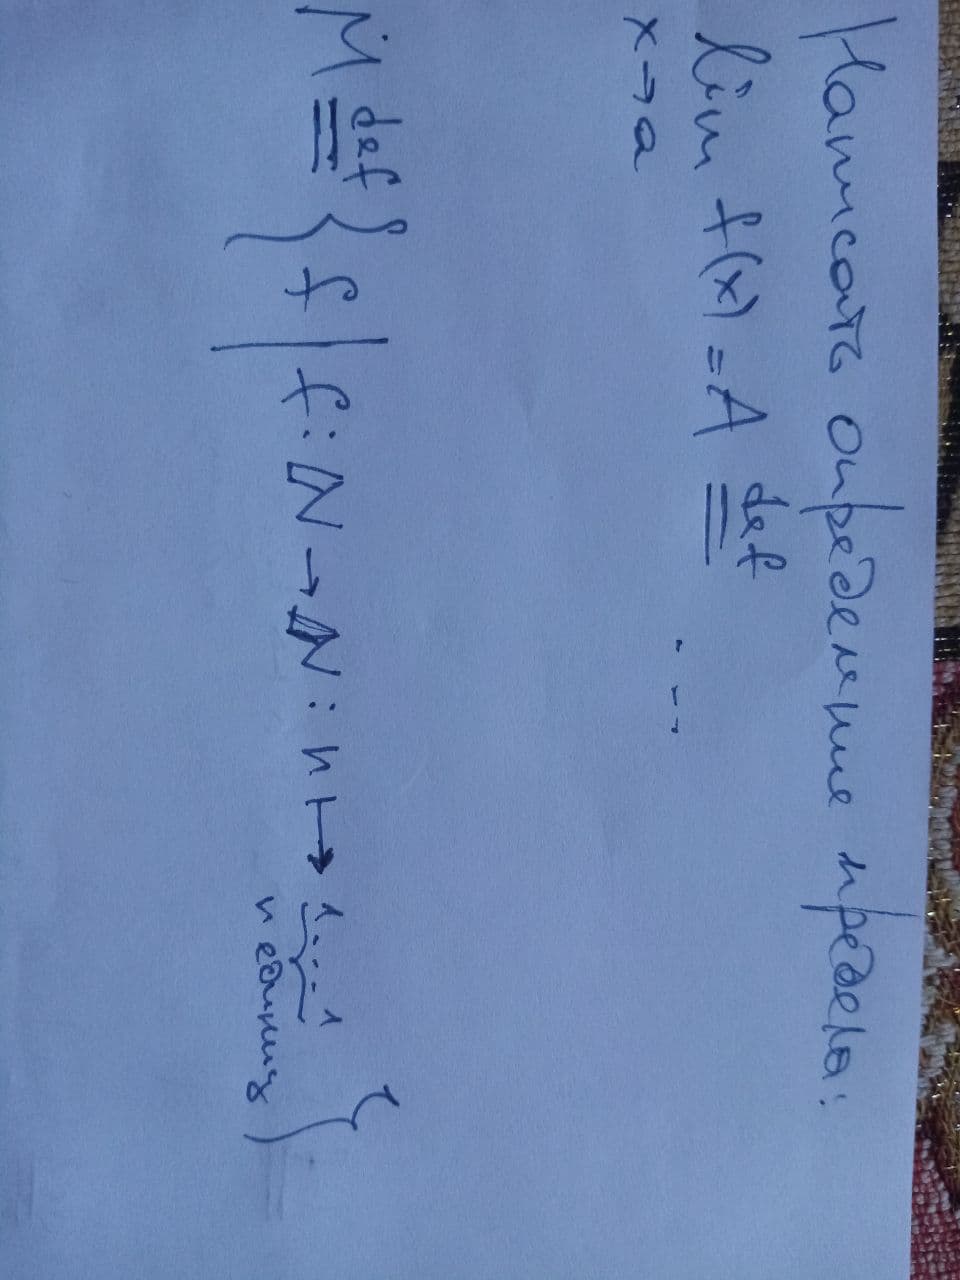 Написать определение предела:
lim f(x) = A def
x→a
...
M def { f | f: N → N : n ↦ 1...1 }
n единиц